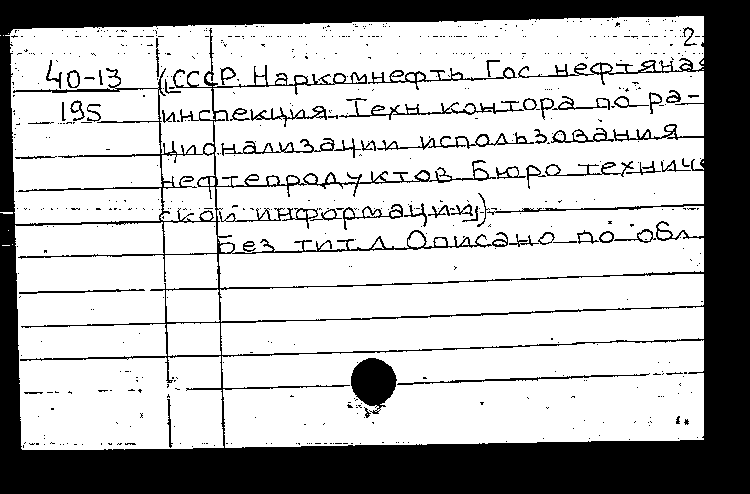 2.
40-13
195
(СССР. Наркомнефть. Гос. нефтяная
инспекция. Техн. контора по ра-
ционализации использования
нефтепродуктов. Бюро техниче
ской информации).
Без тит. л. Описано по обл.